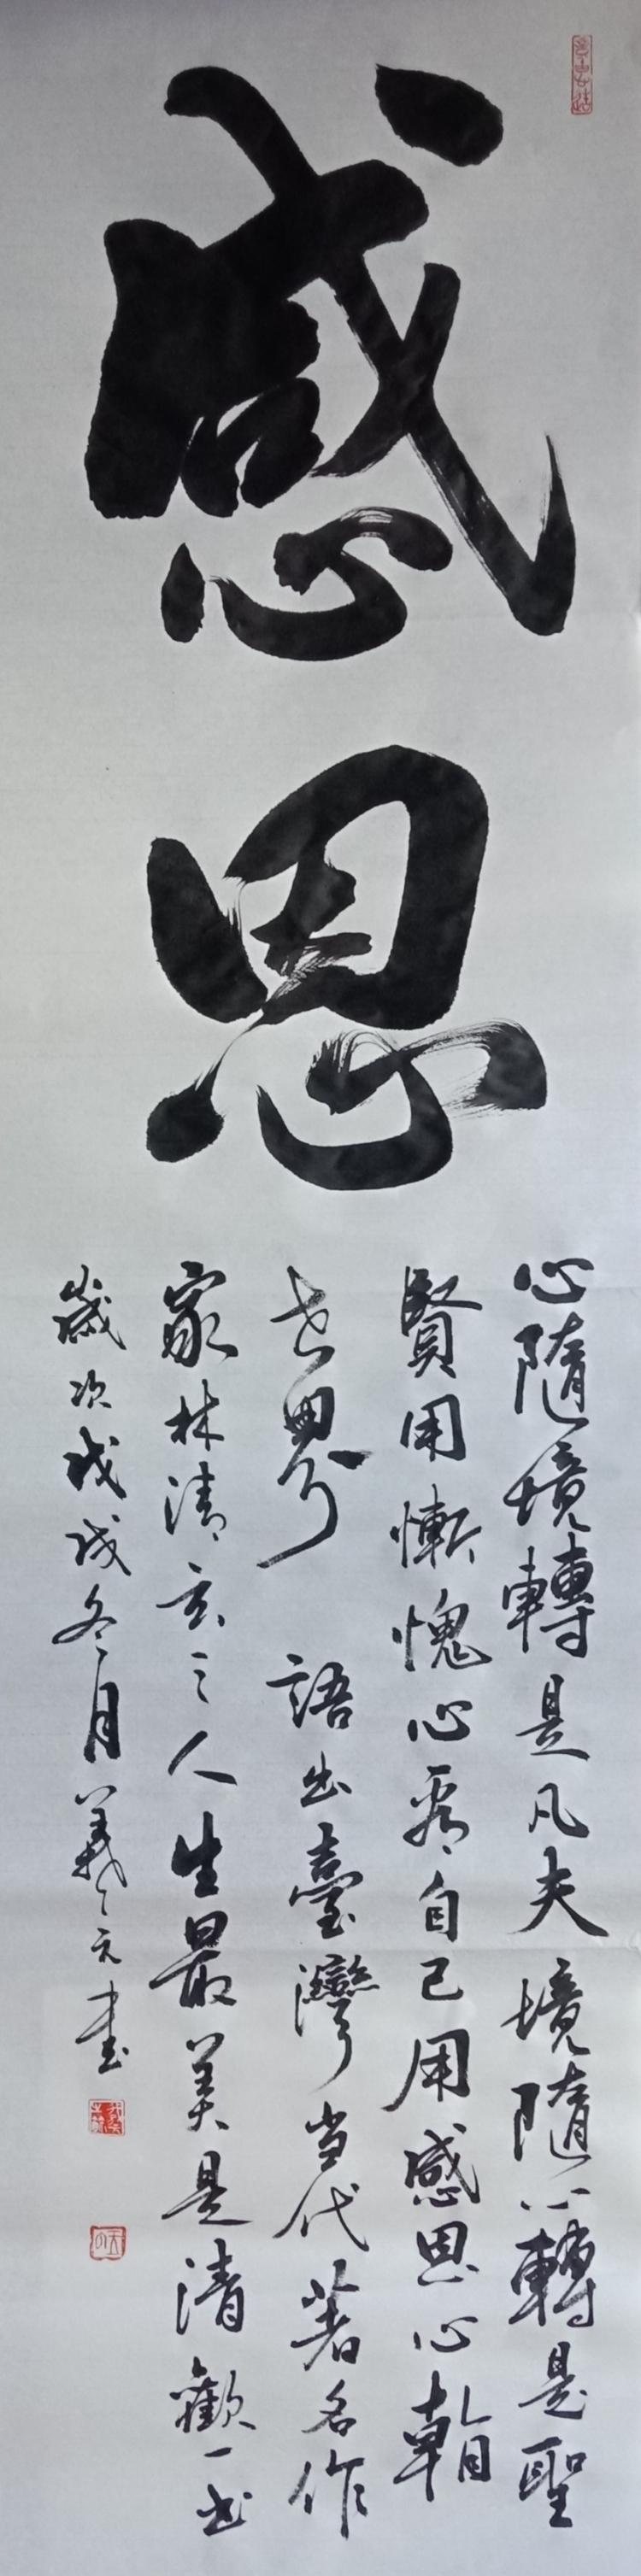 感恩
心隨境轉是凡夫境隨心轉是聖
賢用慚愧心看自己用感恩心看
世界 語出臺灣当代著名作
家林清玄之人生最美是清歡一书
歲次戊戌冬月義元書